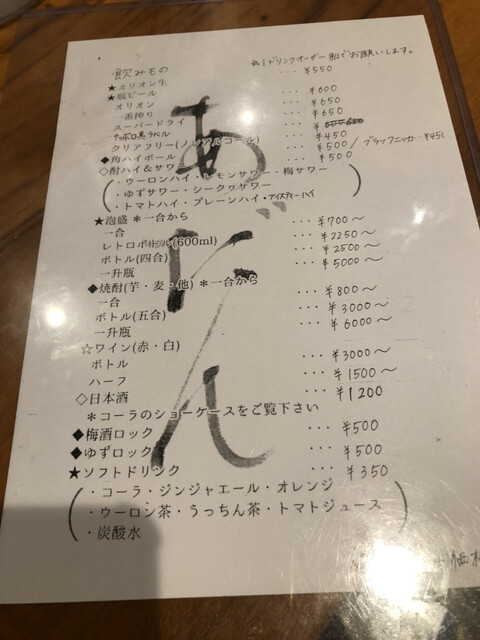 飲みもの
*1ドリンクオーダー制でお願いします。
★オリオン生 ··· ¥550
★瓶ビール
オリオン ··· ¥600
一番搾り ··· ¥650
スーパードライ ··· ¥650
サッポロ黒ラベル ··· ¥
クリアフリー(ノンアルコール) ··· ¥450
◆角ハイボール ··· ¥500/ブラックニッカ ¥45
◇酎ハイ&サワー ··· ¥500
・ウーロンハイ・レモンサワー・梅サワー
・ゆずサワー・シークヮサワー
・トマトハイ・プレーンハイ・アイスティーハイ
★泡盛 *一合から
一合 ··· ¥700~
レトロボトル(600ml) ··· ¥2250~
ボトル(四合) ··· ¥2500~
一升瓶 ··· ¥5000~
◆焼酎(芋・麦・他) *一合から
一合 ··· ¥800~
ボトル(五合) ··· ¥3000~
一升瓶 ··· ¥6000~
☆ワイン(赤・白)
ボトル ··· ¥3000~
ハーフ ··· ¥1500~
◇日本酒 ··· ¥1200
*コーラのショーケースをご覧下さい
◆梅酒ロック ··· ¥500
◆ゆずロック ··· ¥500
★ソフトドリンク ··· ¥350
・コーラ・ジンジャエール・オレンジ
・ウーロン茶・うっちん茶・トマトジュース
・炭酸水
あだん